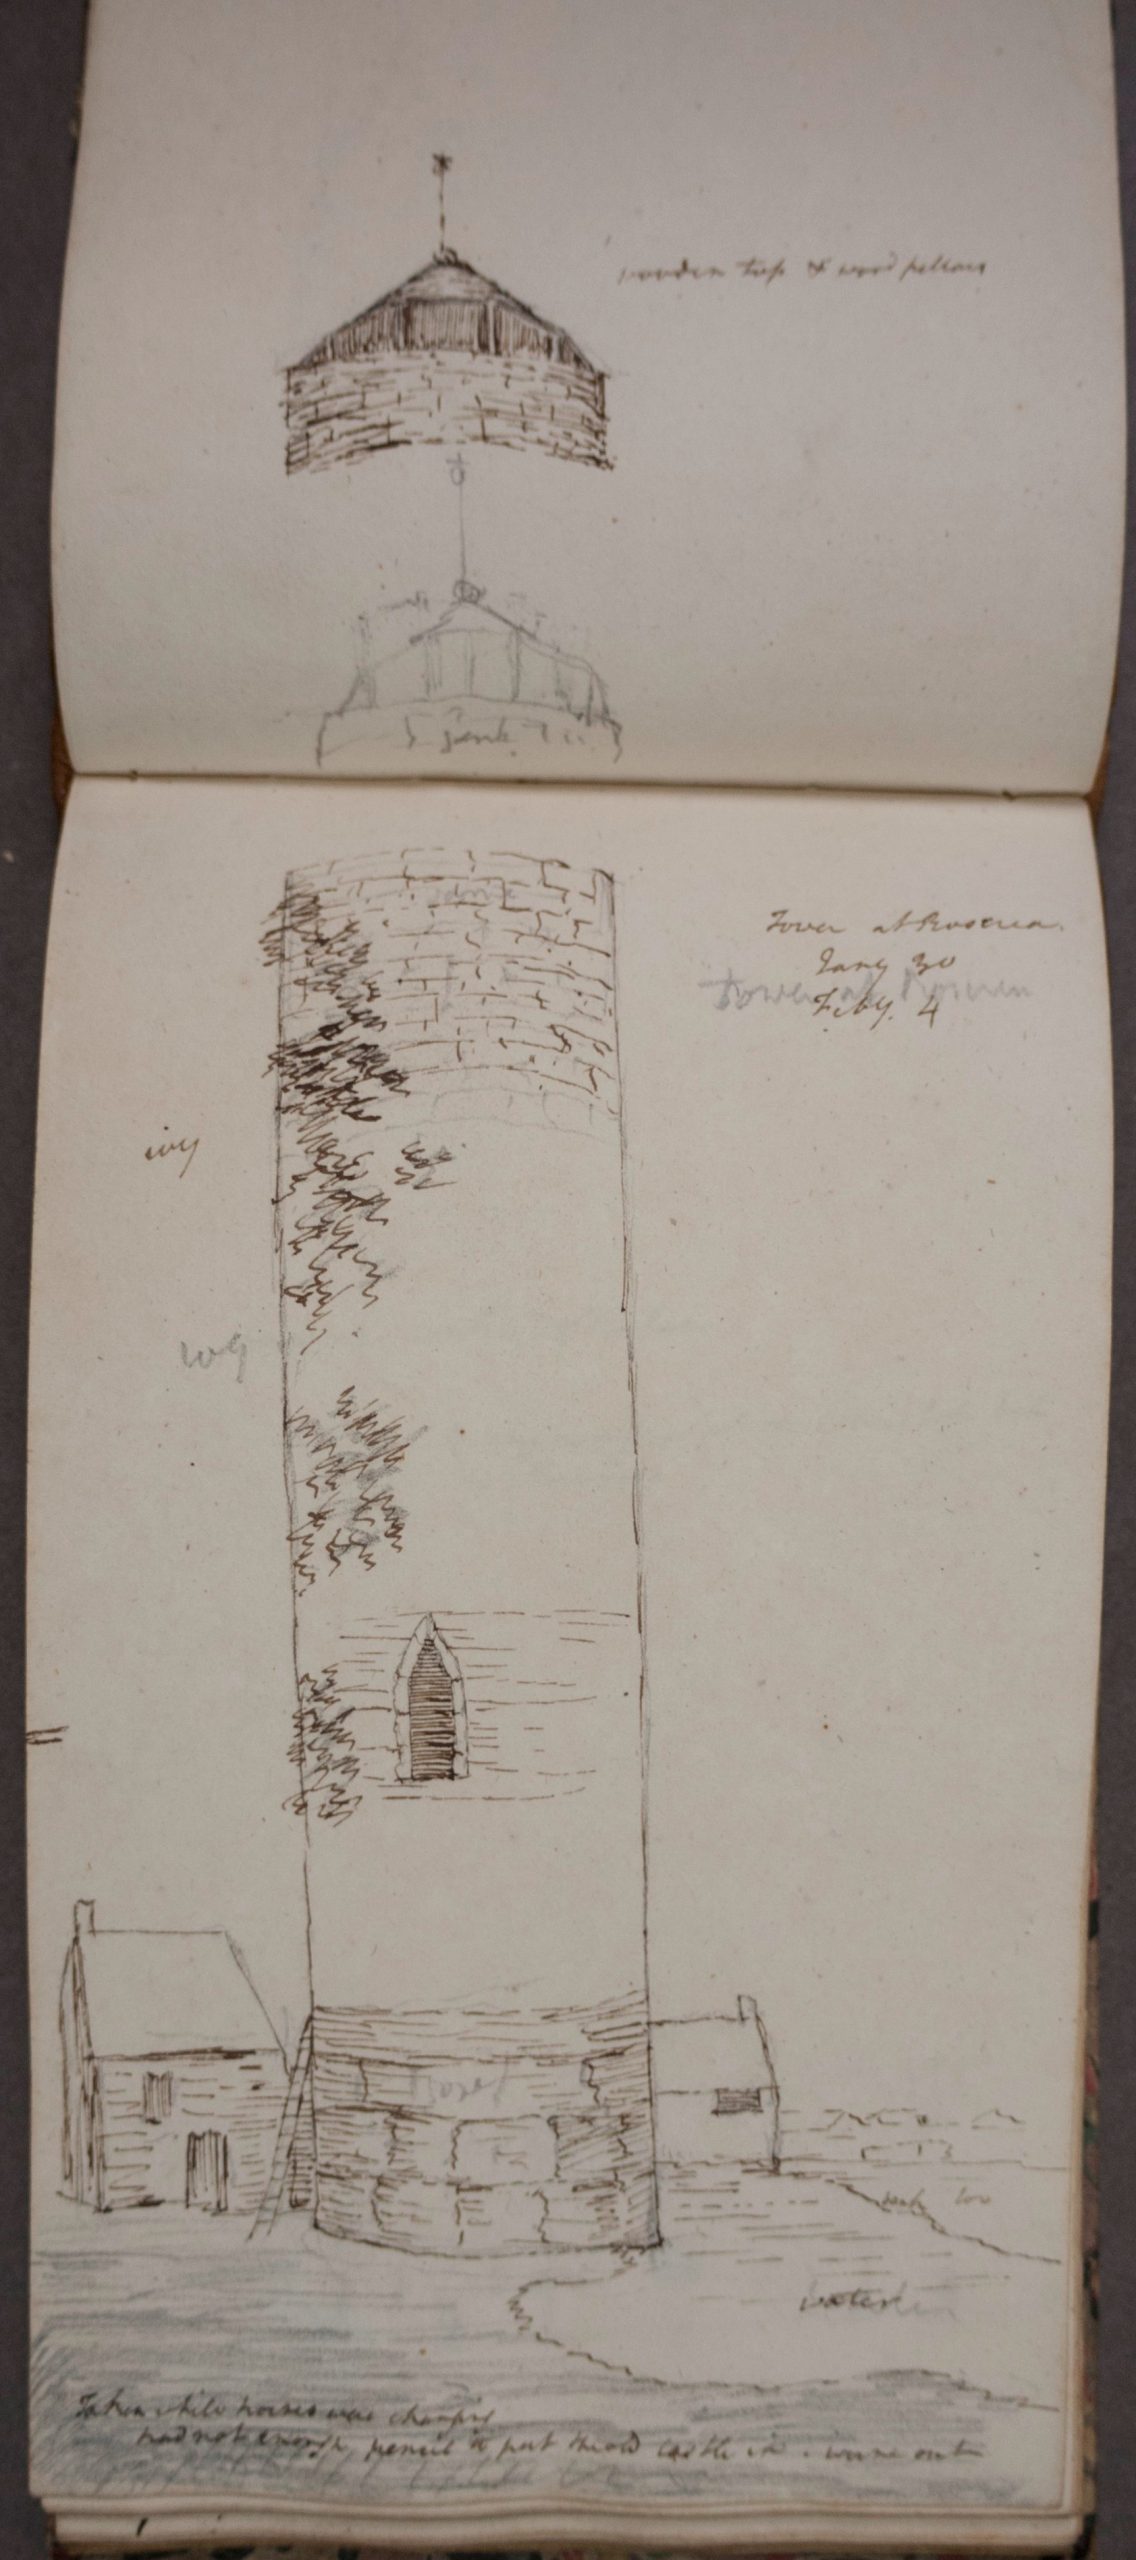 wooden top & wood pillars
5
Tower at Roscrea.
Jany 30
Tower at Roscrea
Feby. 4
ivy
ivy
water
Taken while horses was changing
had not enough pencil to put the old castle in. worne out